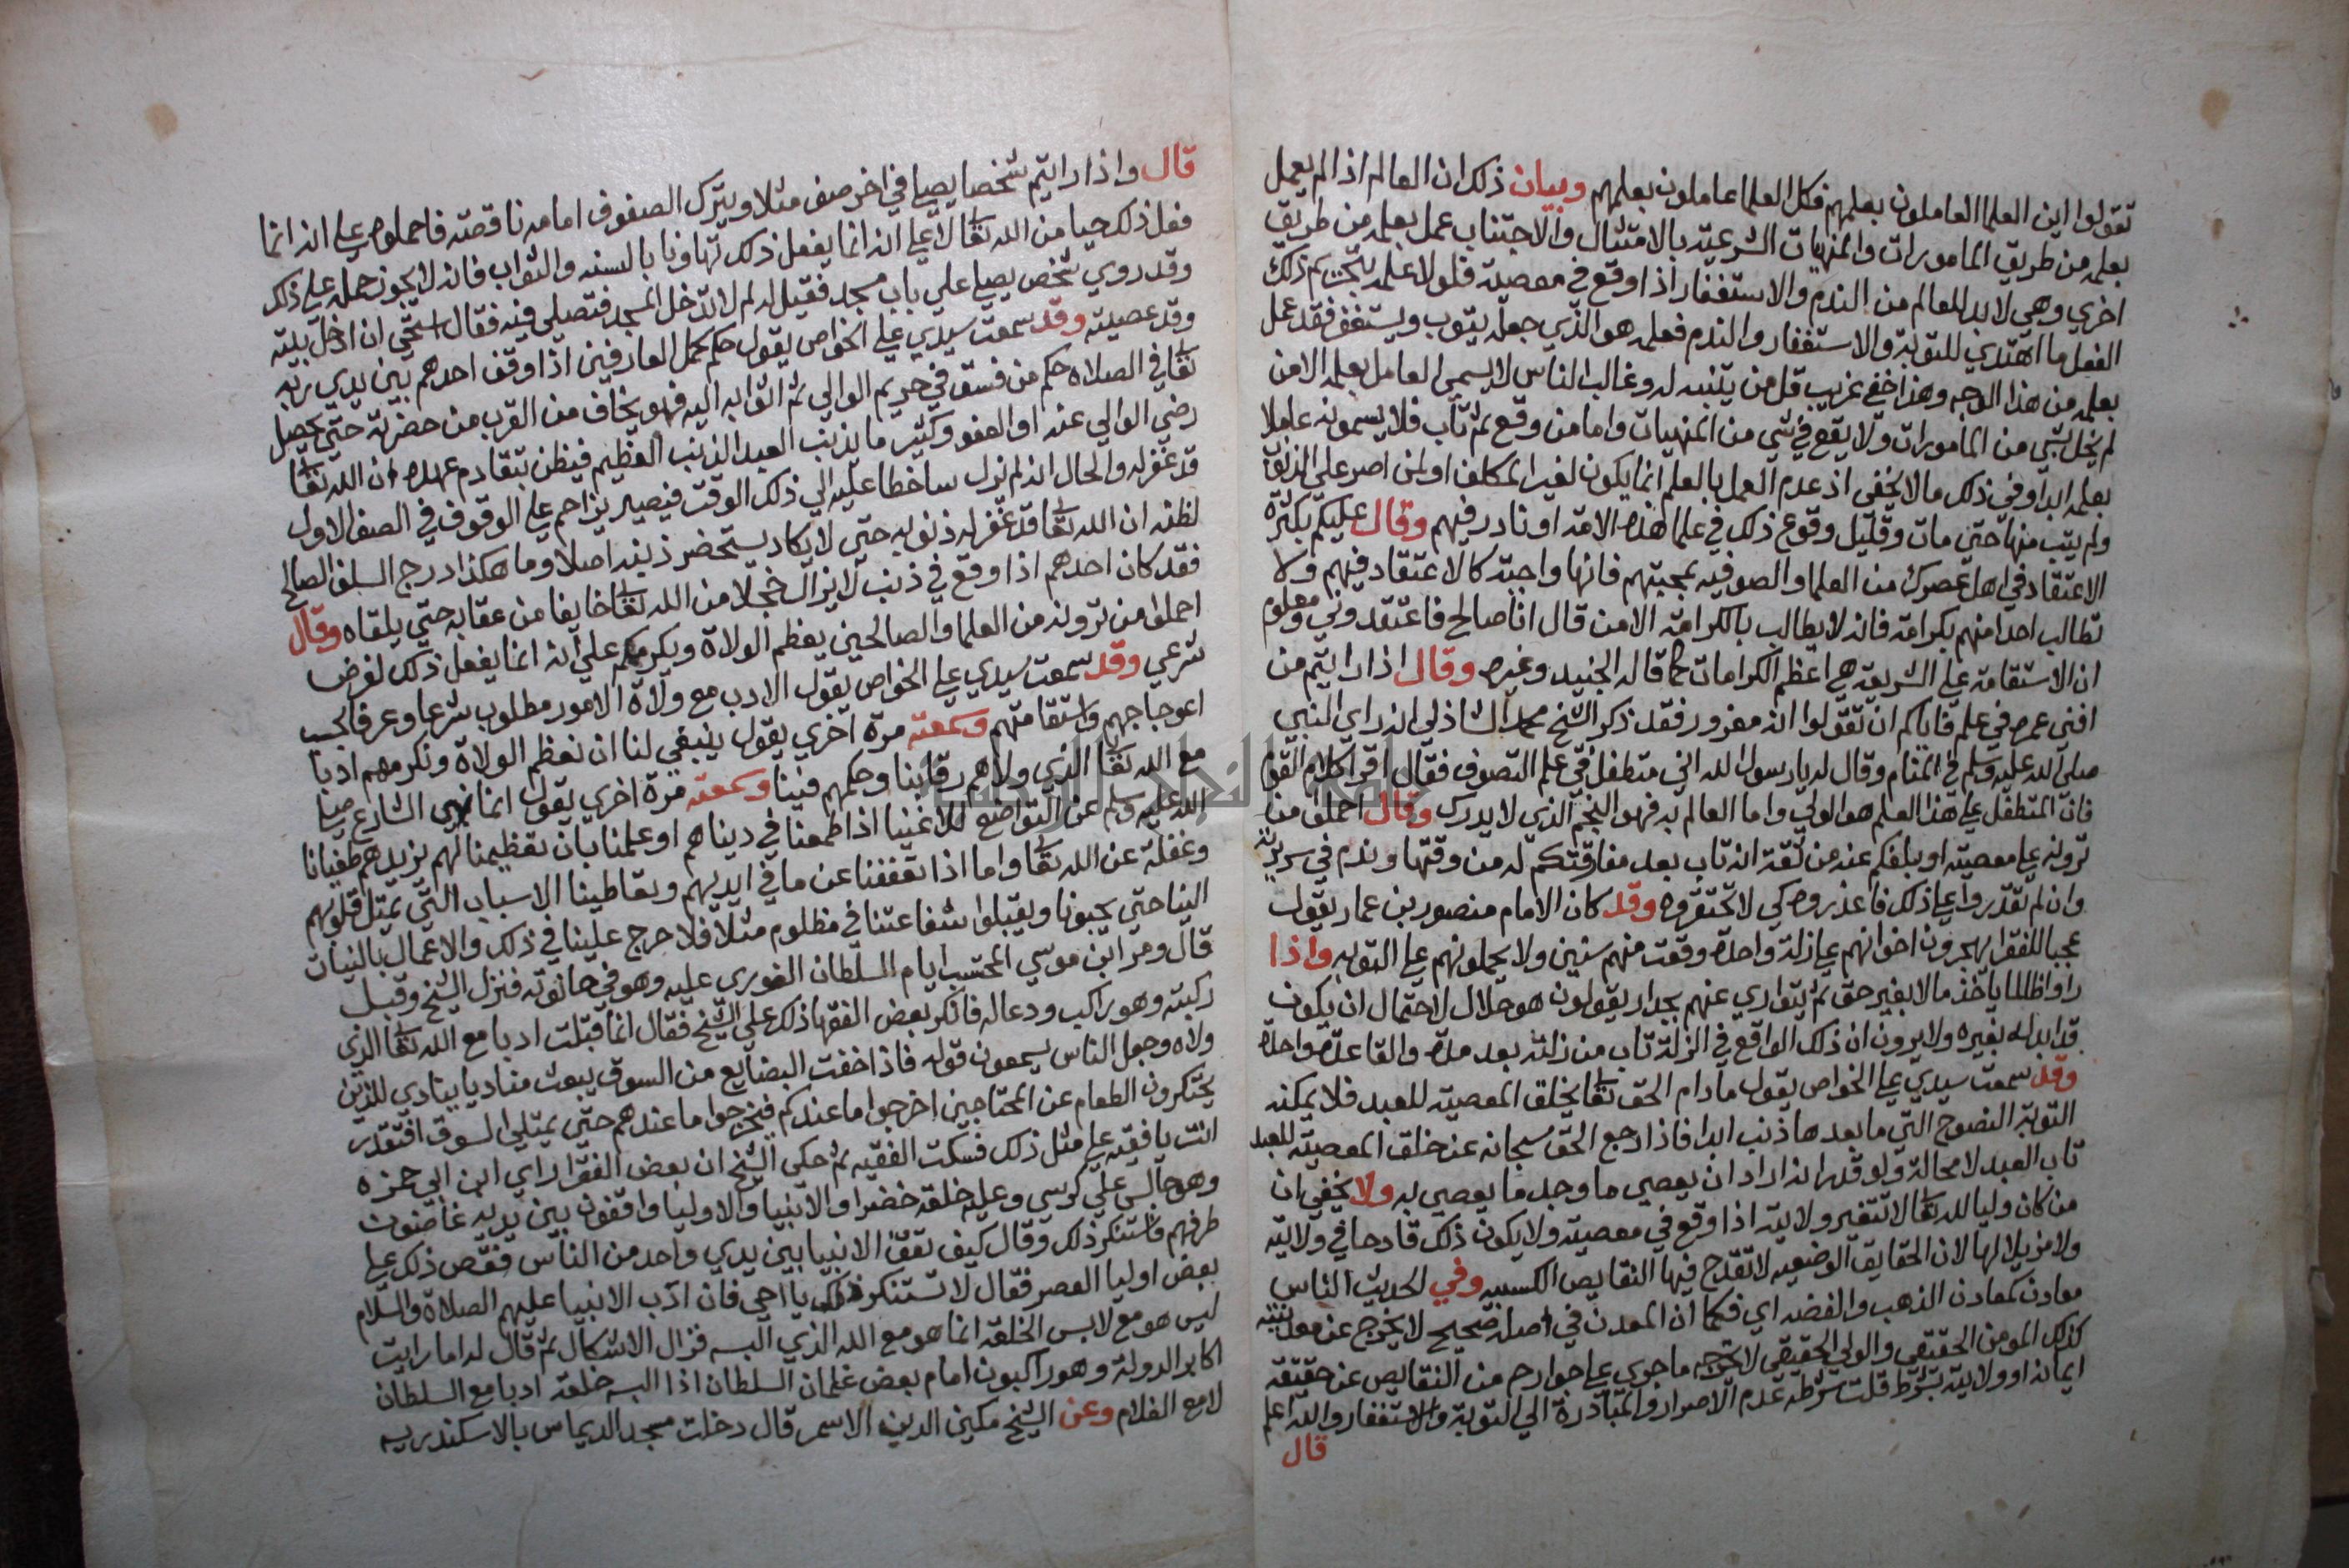 تقولوا اين العلما العاملون بعلمهم فكل العلما عاملون بعلمهم وبيان ذلك ان العالم اذا لم يعمل
بعلمه من طريق المامورات والمنهيات الشرعية بالامتثال والاجتناب عمل بعلمه من طريق
اخري وهي لا بد للعالم من الندم والاستغفار اذا وقع في معصية فلولا علمه بتحريم ذلك
الفعل ما اهتدي للتوبة والاستغفار والندم فعلمه هو الذي جعله يتوب ويستغفر فقد عمل
بعلمه من هذا الوجه وهذا خفي غريب قل من يتنبه له وغالب الناس لا يسمي العامل بعلمه الا من
لم يخل بشي من المامورات ولا يقع في شي من المنهيات واما من وقع ثم تاب فلا يسمونه عاملا
بعلمه ابدا وفي ذلك ما لا يخفي اذ عدم العمل بالعلم انما يكون لغير المكلف او لمن اصر علي الزلة
ولم يتب منها حتي مات وقليل وقوع ذلك في علما هذه الامة او نادر فيهم وقال عليكم بكثرة
الاعتقاد في اهل عصرك من العلما والصوفيه بمحبتهم فانها واجبة كالاعتقاد فيهم ولا
تطالب احدا منهم بكرامة فانه لا يطالب بالكرامة الا من قال انا صالح فاعتقدوني ومعلوم
ان الاستقامة علي الشريعة هي اعظم الكرامات كما قاله الجنيد وغيره وقال اذا رايتم من
افني عمره في علم فاياكم ان تقولوا انه مغرور فقد ذكر الشيخ محمد الشاذلي انه راي النبي
صلي الله عليه وسلم في المنام وقال له يا رسول الله اني متطفل في علم التصوف فقال اقرا كلام القوم
فان المتطفل علي هذا العلم هو الولي واما العالم به فهو النجم الذي لا يدرك وقال احملوا من
ترونه علي معصية او بلغكم عنه من ثقة انه تاب بعد مفارقتكم له من وقتها وندم في سريرته
وان لم تقدروا علي ذلك فاعذروه كي لا تحتقروه وقد كان الامام منصور بن عمار يقول
عجبا للفقرا يهجرون اخوانهم علي زلة واحدة وقعت منهم سنين ولا يحملونهم علي التوبه واذا
راوا ظالما ياخذ مالا بغير حق ثم يتواري عنهم بجدار يقولون هو حلال لاحتمال ان يكون
قد ابدله بغيره ولا يرون ان ذلك الواقع في الزلة تاب من زلته بعد مدة والقاعدة واحدة
وقد سمعت سيدي علي الخواص يقول ما دام الحق تعالي يخلق المعصية للعبد فلا يمكنه
التوبة النصوح التي ما بعدها ذنب ابدا فاذا رجع الحق سبحانه عن خلق المعصية للعبد
تاب العبد لا محالة ولو قدر انه اراد ان يعصي ما وجد ما يعصي به ولا يخفي ان
من كان وليا لله تعالي لا تتغير ولايته اذا وقع في معصية ولا يكون ذلك قادحا في ولايته
ولا مزيلا لها لان الحقايق الوضعيه لا تقدح فيها النقايص الكسبيه وفي الحديث الناس
معادن كمعادن الذهب والفضه اي فكما ان المعدن في اصله صحيح لا يخرج عن معدنيته
كذلك المومن الحقيقي والولي الحقيقي لا يخرجه ما جري علي جوارحه من النقايص عن حقيقة
ايمانه او ولايته بشرط قلت شرطه عدم الاصرار والمبادرة الي التوبة والاستغفار والله اعلم
قال
قال واذا رايتم شخصا يصلي في اخر صف مثلا ويترك الصفوف امامه ناقصة فاحملوه علي انه انما
فعل ذلك حيا من الله تعالي لا علي انه انما يفعل ذلك تهاونا بالسنه والثواب فانه لا يجوز حمله علي ذلك
وقد روي شخص يصلي علي باب مسجد فقيل له لم لا تدخل المسجد فتصلي فيه فقال استحي ان ادخل بيته
وقد عصيته وقد سمعت سيدي علي الخواص يقول حكم كمل العارفين اذا وقف احدهم بين يدي ربه
تعالي في الصلاه حكم من فسق في حريم الوالي ثم اتوا به اليه فهو يخاف من القرب من حضرته حتي يحصل
رضي الوالي عنه او العفو وكثير ما يذنب العبد الذنب العظيم فيظن بتقادم عهده ان الله تعالي
قد غفر له والحال انه لم يزل ساخطا عليه الي ذلك الوقت فيصير يزاحم علي الوقوف في الصف الاول
لظنه ان الله تعالي قد غفر له ذنوبه حتي لا يكاد يستحضر ذنبه اصلا وما هكذا درج السلف الصالح
فقد كان احدهم اذا وقع في ذنب لا يزال خجلا من الله تعالي خايفا من عقابه حتي يلقاه وقال
احملوا من ترونه من العلما والصالحين يعظم الولاة ويكرمهم علي انه انما يفعل ذلك لغرض
شرعي وقد سمعت سيدي علي الخواص يقول الادب مع ولاة الامور مطلوب شرعا وعرفا بحسب
اعوجاجهم واستقامتهم وسمعته مرة اخري يقول ينبغي لنا ان نعظم الولاة ونكرمهم ادبا
مع الله تعالي الذي ولاهم رقابنا وحكمهم فينا وسمعته مرة اخري يقول انما نهي الشارع صلي
الله عليه وسلم عن التواضع للاغنيا اذا طمعنا في دنياهم او علمنا بان تعظيمنا لهم يزيدهم طغيانا
وغفلة عن الله تعالي واما اذا تعففنا عن ما في ايديهم وتعاطينا الاسباب التي تميل قلوبهم
الينا حتي يحبونا ويقبلوا شفاعتنا في مظلوم مثلا فلا حرج علينا في ذلك والاعمال بالنيات
قال ومر ابن موسي المحتسب ايام السلطان الغوري عليه وهو في حانوته فنزل الشيخ وقبل
ركبته وهو راكب ودعا له فانكر بعض الفقها ذلك علي الشيخ فقال انما قبلت ادبا مع الله تعالي الذي
ولاه وجعل الناس يسمعون قوله فاذا خفت البضايع من السوق يبعث مناديا ينادي للذين
يحتكرون الطعام عن المحتاجين اخرجوا ما عندكم فيخرجوا ما عندهم حتي يمتلي السوق افتقدر
انت يا فقيه علي مثل ذلك فسكت الفقيه ثم حكي الشيخ ان بعض الفقرا راي ابن ابي حمزه
وهو جالس علي كرسي وعليه خلقة خضرا والانبيا والاوليا واقفون بين يديه غاضون
طرفهم فاستنكر ذلك وقال كيف تقف الانبيا بين يدي واحد من الناس فقص ذلك علي
بعض اوليا العصر فقال لا تستنكر ذلك يا اخي فان ادب الانبيا عليهم الصلاة والسلام
ليس هو مع لابس الخلعة انما هو مع الله الذي البسه فزال الاشكال ثم قال له اما رايت
اكابر الدولة وهو راكبون امام بعض غلمان السلطان اذا البسه خلعة ادبا مع السلطان
لا مع الغلام وعن الشيخ مكين الدين الاسمر قال دخلت مسجد الديماس بالاسكندريه